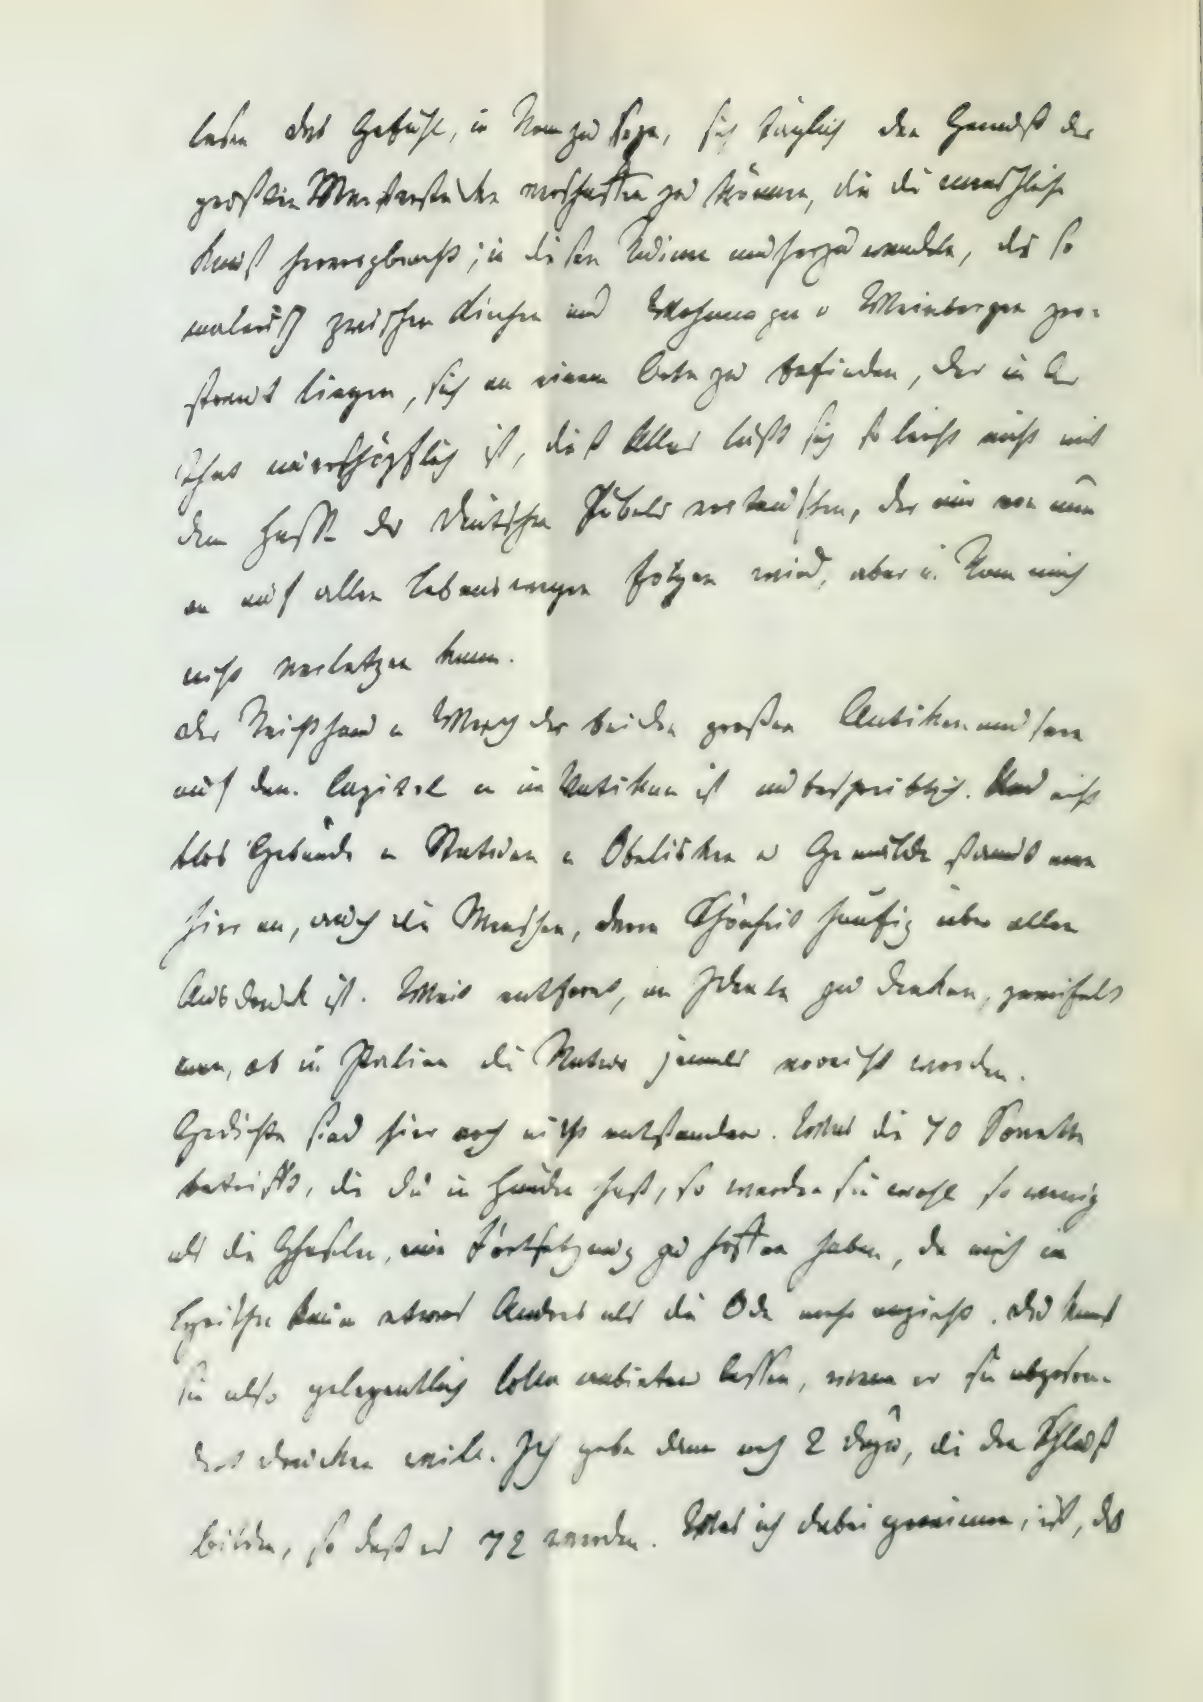 leben das Gefühl, in Rom zu seyn, sich täglich den Genuß der
größten Meisterstücke verschaffen zu können, die die menschliche
Kunst hervorgebracht; in diesen Ruinen umherzuwandeln, die so
malerisch zwischen Kirchen und Wohnungen u Weinbergen zer-
streut liegen, sich an einem Orte zu befinden, der in der
That unerschöpflich ist, dieß Alles läßt sich so leicht nicht mit
dem Hasse des deutschen Pöbels vertauschen, der mir von nun
an auf allen Lebenswegen folgen wird, aber in Rom mich
nicht verletzen kann.
Der Reichthum u Werth der beiden großen Antikenmuseen
auf dem Capitol u im Vatikan ist unbeschreiblich. Und nicht
blos Gebäude u Statuen u Obelisken u Gemälde staunt man
hier an, auch die Menschen, deren Schönheit häufig über allen
Ausdruck ist. Weit entfernt, an Ideale zu denken, zweifelt
man, ob in Italien die Natur jemals erreicht worden.
Gedichte sind hier noch nicht entstanden. Was die 70 Sonette
betrifft, die du in Händen hast, so werden sie wohl so wenig
als die Ghaselen, eine Fortsetzung zu hoffen haben, da mich im
Lyrischen kaum etwas Anders als die Ode mehr anzieht. Du kannst
sie also gelegentlich Cotta anbieten lassen, wenn er sie abgeson-
dert drucken will. Ich gebe dann noch 2 dazu, die den Schluß
bilden, so daß es 72 werden. Was ich dabei gewinne, ist, daß